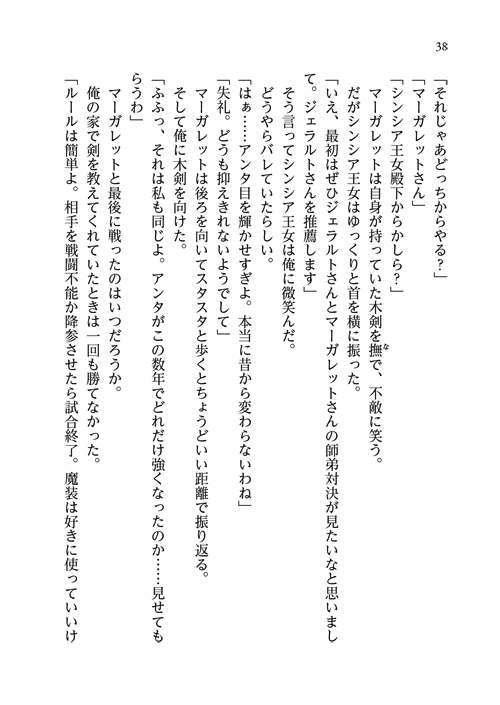 38
「それじゃあどっちからやる?」
「マーガレットさん」
「シンシア王女殿下からかしら?」
　マーガレットは自身が持っていた木剣を撫で、不敵に笑う。
な
　だがシンシア王女はゆっくりと首を横に振った。
「いえ、最初はぜひジェラルトさんとマーガレットさんの師弟対決が見たいなと思いまし
て。ジェラルトさんを推薦します」
　そう言ってシンシア王女は俺に微笑んだ。
　どうやらバレていたらしい。
「はぁ……アンタ目を輝かせすぎよ。本当に昔から変わらないわね」
「失礼。どうも抑えきれないようでして」
　マーガレットは後ろを向いてスタスタと歩くとちょうどいい距離で振り返る。
　そして俺に木剣を向けた。
「ふふっ、それは私も同じよ。アンタがこの数年でどれだけ強くなったのか……見せても
らうわ」
　マーガレットと最後に戦ったのはいつだろうか。
　俺の家で剣を教えてくれていたときは一回も勝てなかった。
「ルールは簡単よ。相手を戦闘不能か降参させたら試合終了。魔装は好きに使っていいけ